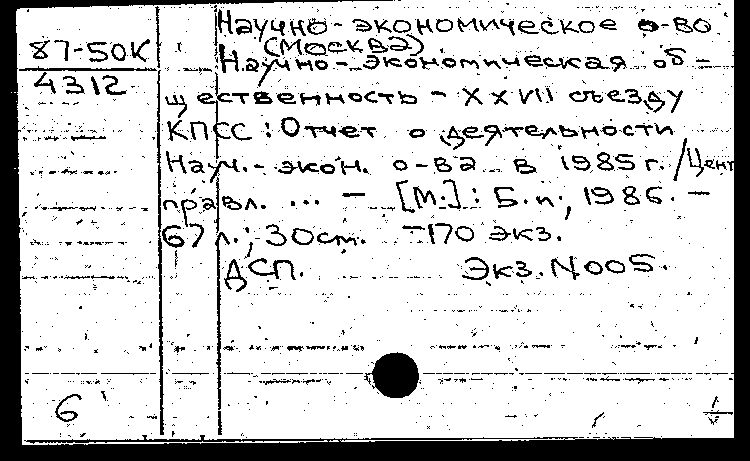 Научно-экономическое о-во
(Москва)
87-50К
4312
Научно-экономическая об-
щественность - XXVII съезду
КПСС: Отчет о деятельности
Науч.-экон. о-ва в 1985 г. / Цент
правл. ... - [М.]: Б.и., 1986. -
67 л.; 30 см. - 170 экз.
ДСП. Экз. N 005.
6